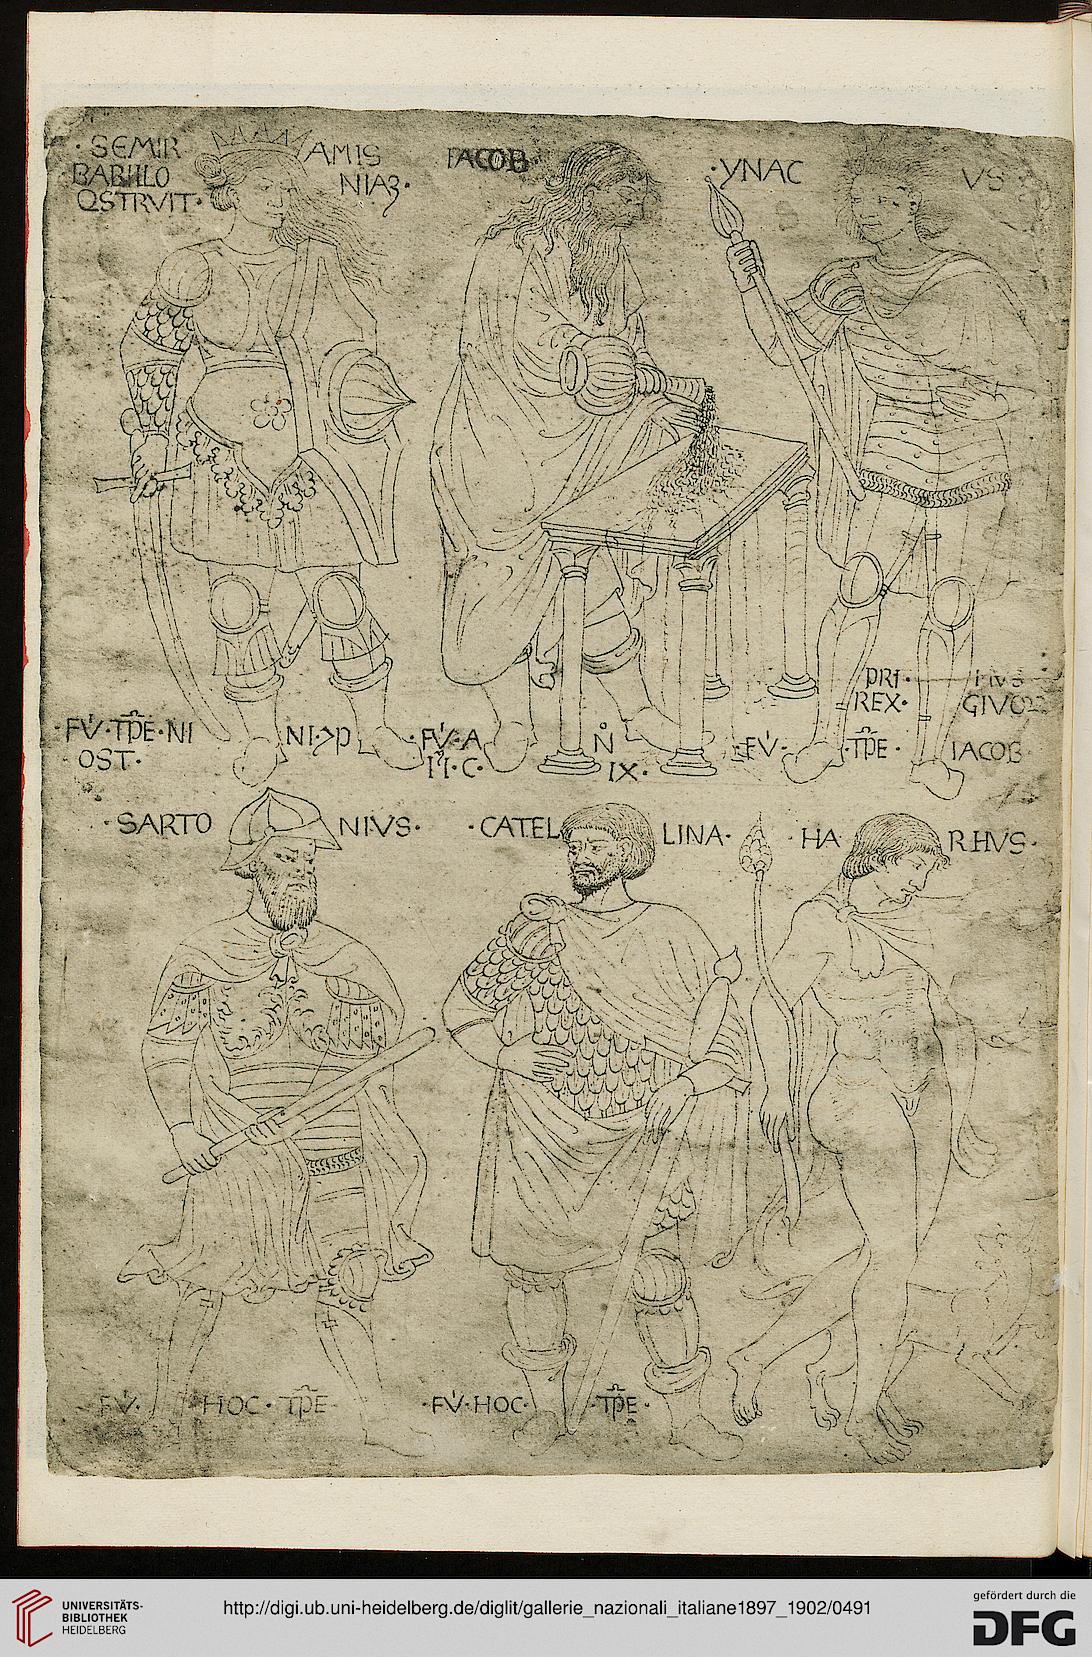 · SEMIR AMIS
BABILLO NIAʒ·
QSTRVIT·
IACOB
·YNAC VS
·FV·TP̄E·NI NI·
OST·
·FV·A N
IX·
PRI· MVS
REX· GIVOR
FV· ·TP̄E· IACOB
·SARTO NIVS·
·CATEL LINA·
·HA RHVS·
FV· HOC· TP̄E
·FV·HOC· ·TP̄E·
UNIVERSITÄTS-
BIBLIOTHEK
HEIDELBERG
http://digi.ub.uni-heidelberg.de/diglit/gallerie_nazionali_italiane1897_1902/0491
gefördert durch die
DFG